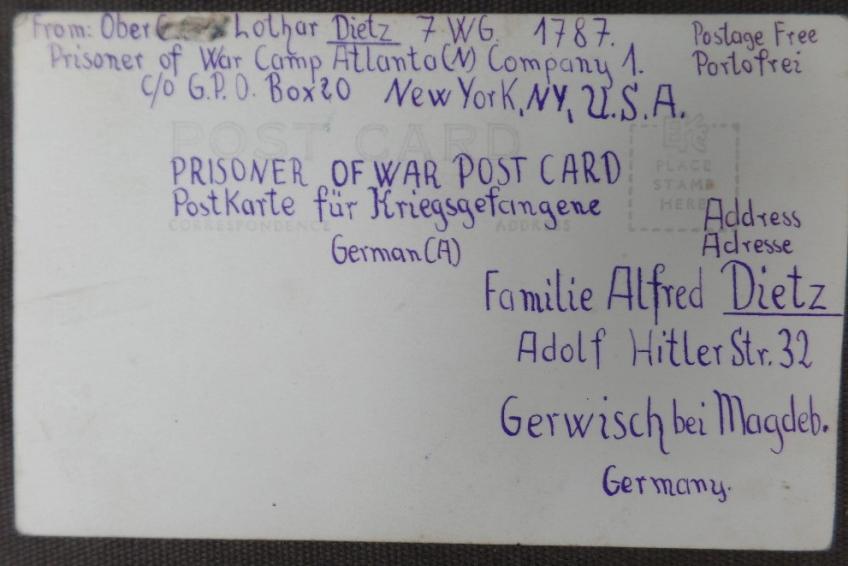 From: Ober Lothar Dietz 7 WG. 1787.
Postage Free
Prisoner of War Camp Atlanta(N) Company 1.
Portofrei
c/o G.P.O. Box 20 New York, NY, U.S.A.
POST CARD
PLACE
STAMP
HERE
PRISONER OF WAR POST CARD
Postkarte für Kriegsgefangene
CORRESPONDENCE
ADDRESS
Address
German(A)
Adresse
Familie Alfred Dietz
Adolf Hitler Str. 32
Gerwisch bei Magdeb.
Germany.